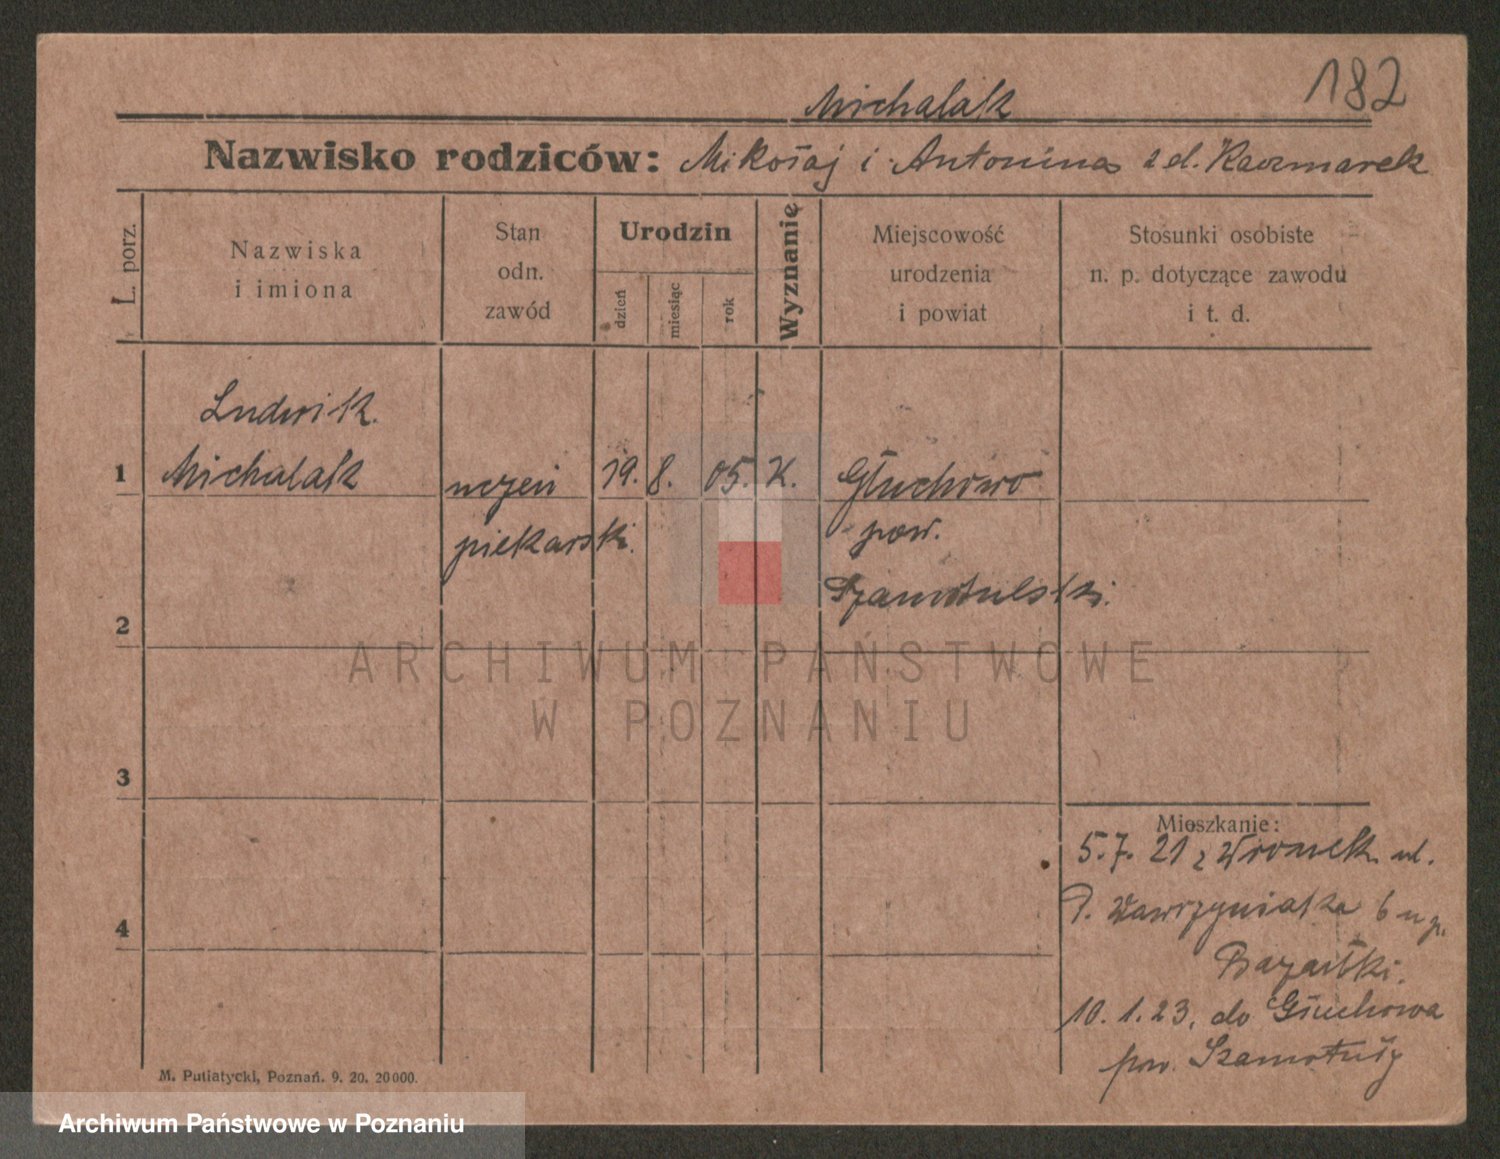 182
Michalak
Nazwisko rodziców: Mikołaj i Antonina z d. Kaczmarek
L. porz.
Nazwiska
i imiona
Stan
odn.
zawód
Urodzin
dzień
miesiąc
rok
Wyznanie
Miejscowość
urodzenia
i powiat
Stosunki osobiste
n. p. dotyczące zawodu
i t. d.
Ludwik
1 Michalak uczeń 19. 8. 05. K. Głuchowo
piekarski. pow.
Szamotulski.
2
ARCHIWUM PAŃSTWOWE
W POZNANIU
3
Mieszkanie:
5.7.21 z Wronek ul.
P. Wawrzyniaka 6 u p.
4
10.1.23. do Głuchowa
pow. Szamotuły
M. Putiatycki, Poznań. 9. 20. 20000.
Archiwum Państwowe w Poznaniu